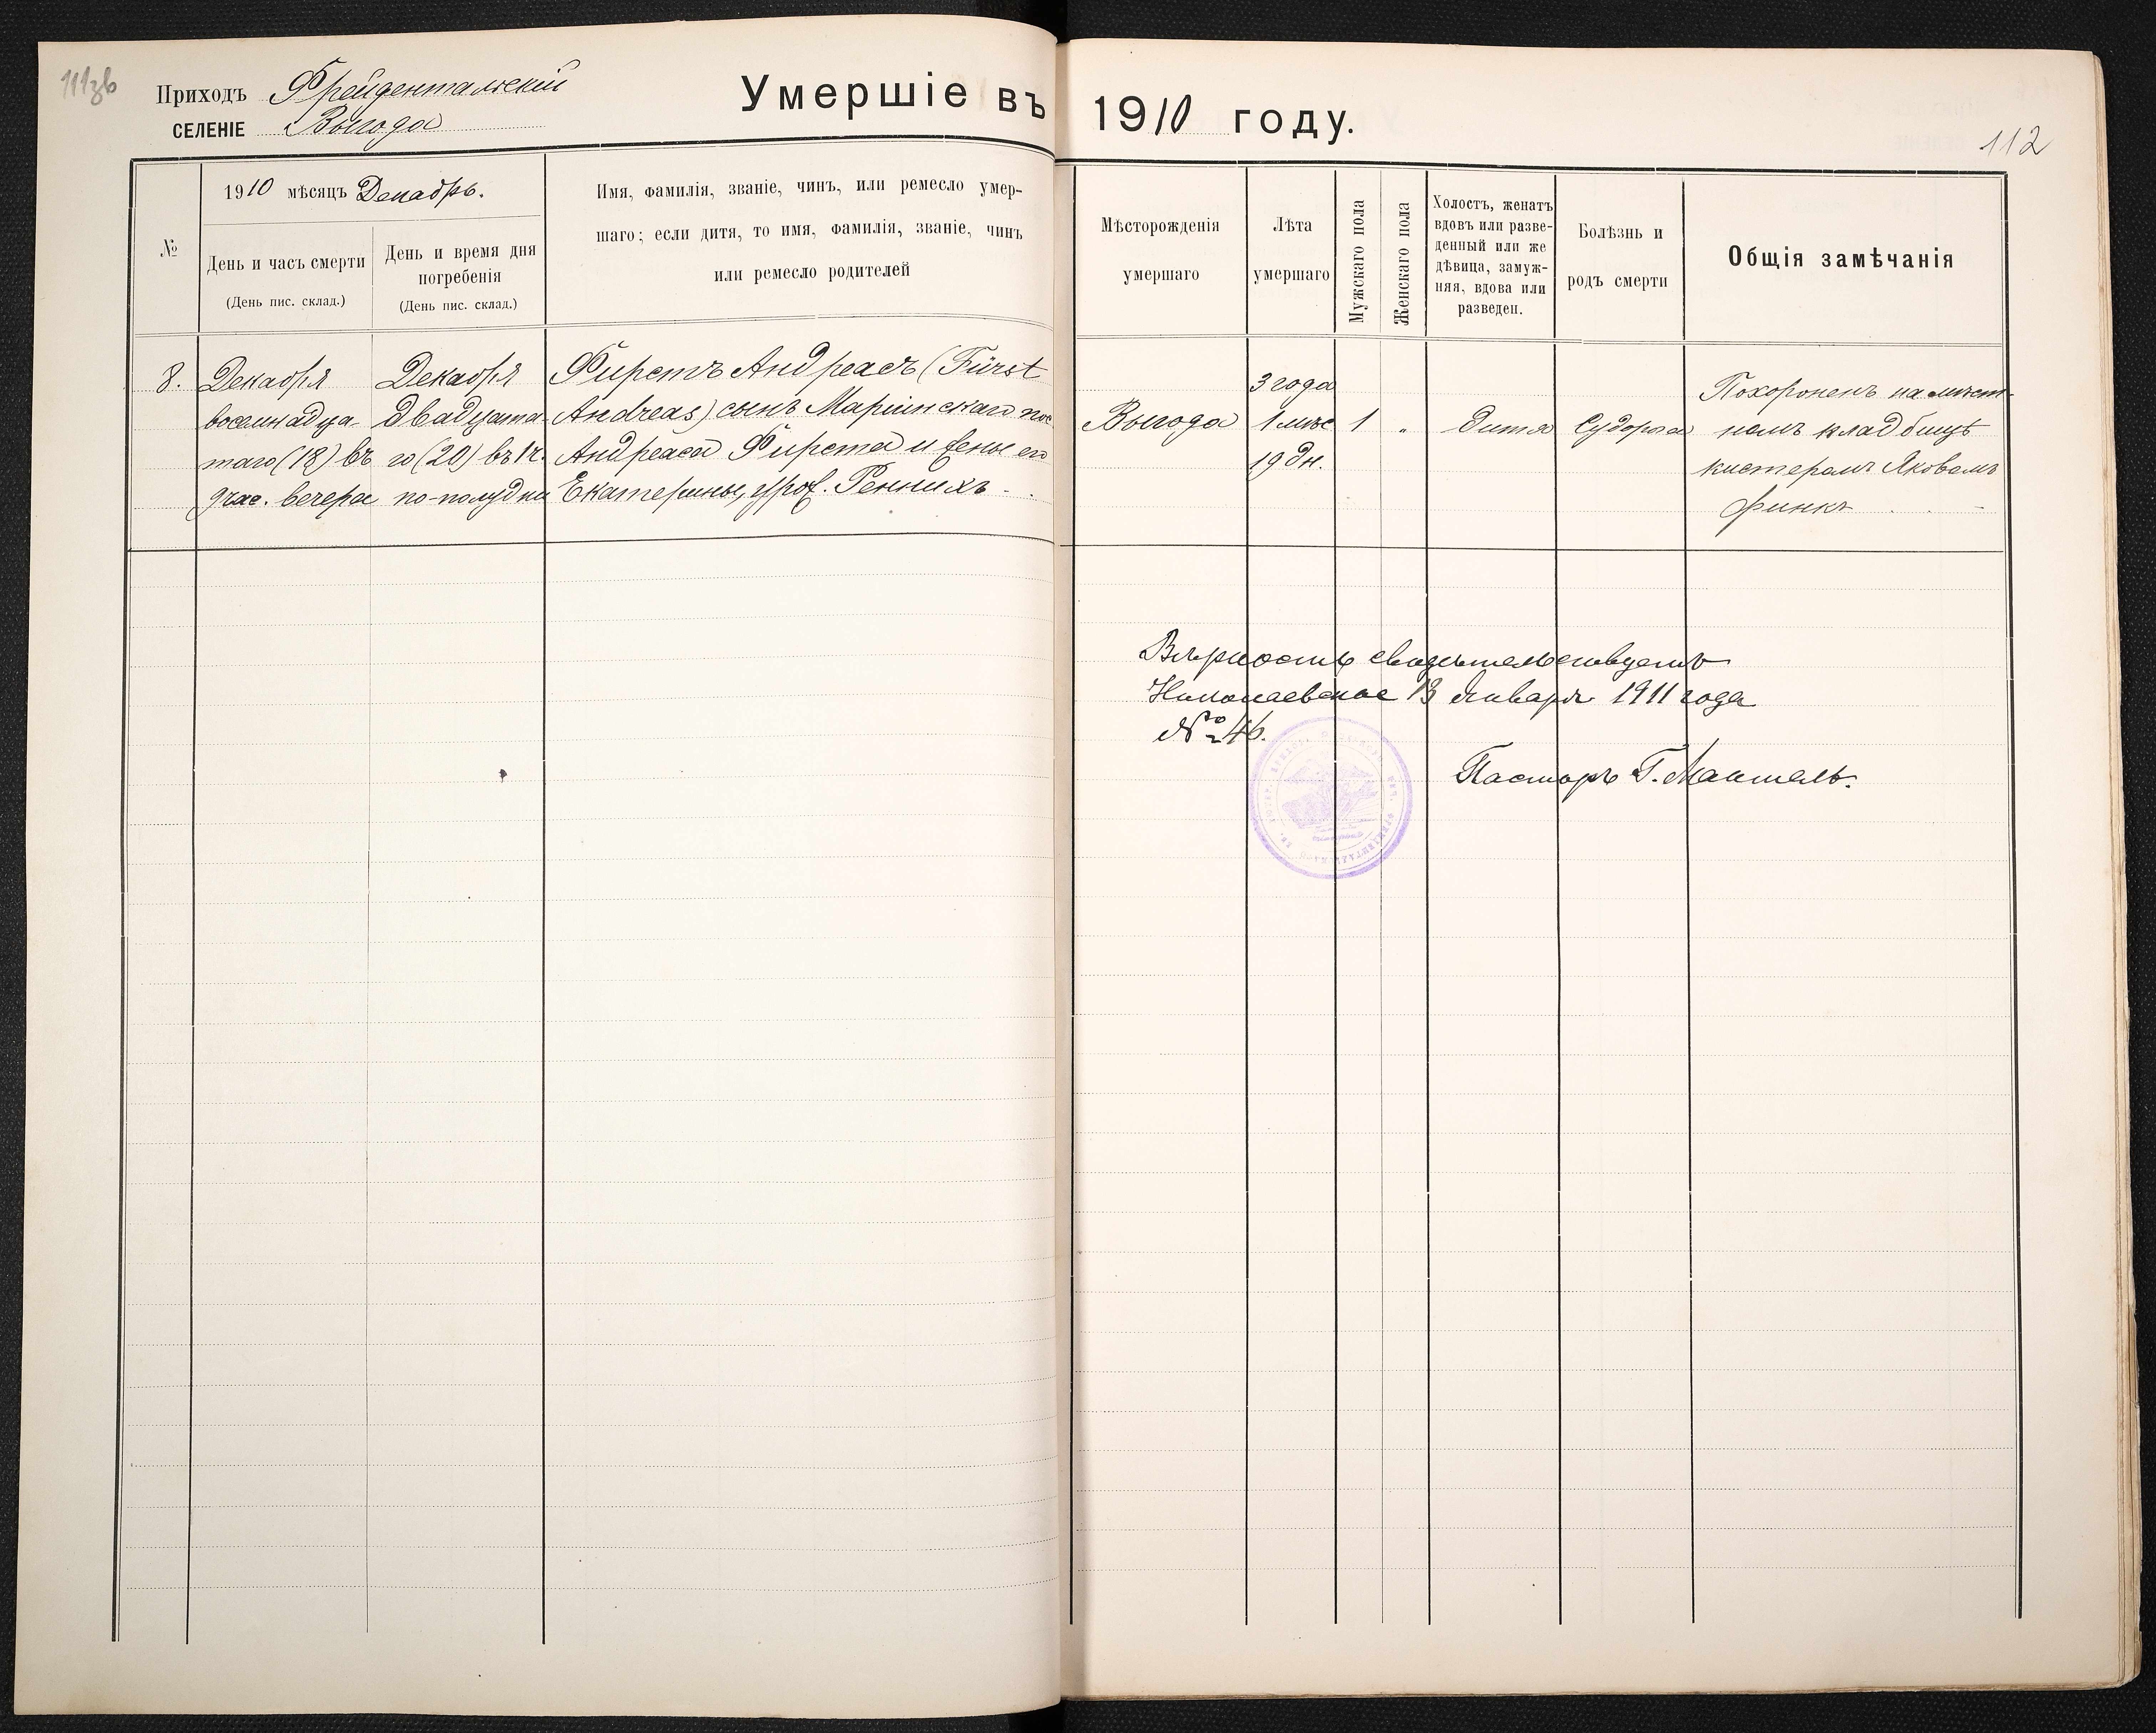 111зв
Приходъ Фрейдентальскій
СЕЛЕНІЕ Выгода
Умершіе въ 1910 году.
112
№
1910 мѣсяцъ Декабрь.
День и часъ смерти
(День пис. склад.)
День и время дня
погребенія
(День пис. склад.)
Имя, фамилія, званіе, чинъ, или ремесло умер-
шаго; если дитя, то имя, фамилія, званіе, чинъ
или ремесло родителей
Мѣсторожденія
умершаго
Лѣта
умершаго
Мужскаго пола
Женскаго пола
Холостъ, женатъ
вдовъ или разве-
денный или же
дѣвица, замуж-
няя, вдова или
разведен.
Болѣзнь и
родъ смерти
Общія замѣчанія
8.
Декабря
восемнадца-
таго (18) въ
9 час. вечера
Декабря
двадцата-
го (20) въ 1 ч.
по-полудни
Фирстъ Андреасъ (Fürst
Andreas) сынъ Маріинскаго пос.
Андреаса Фирста и жены его
Екатерины, урож. Реннихъ
Выгода
3 года
1 мѣс
19 дн.
1
"
дитя
Судорога
Похороненъ на мѣст-
номъ кладбищѣ
кистеромъ Яковомъ
Финкъ
Вѣрность свидѣтельствуетъ
Николаевское 13 Января 1911 года
№ 46.
Пасторъ Г. Мантель.